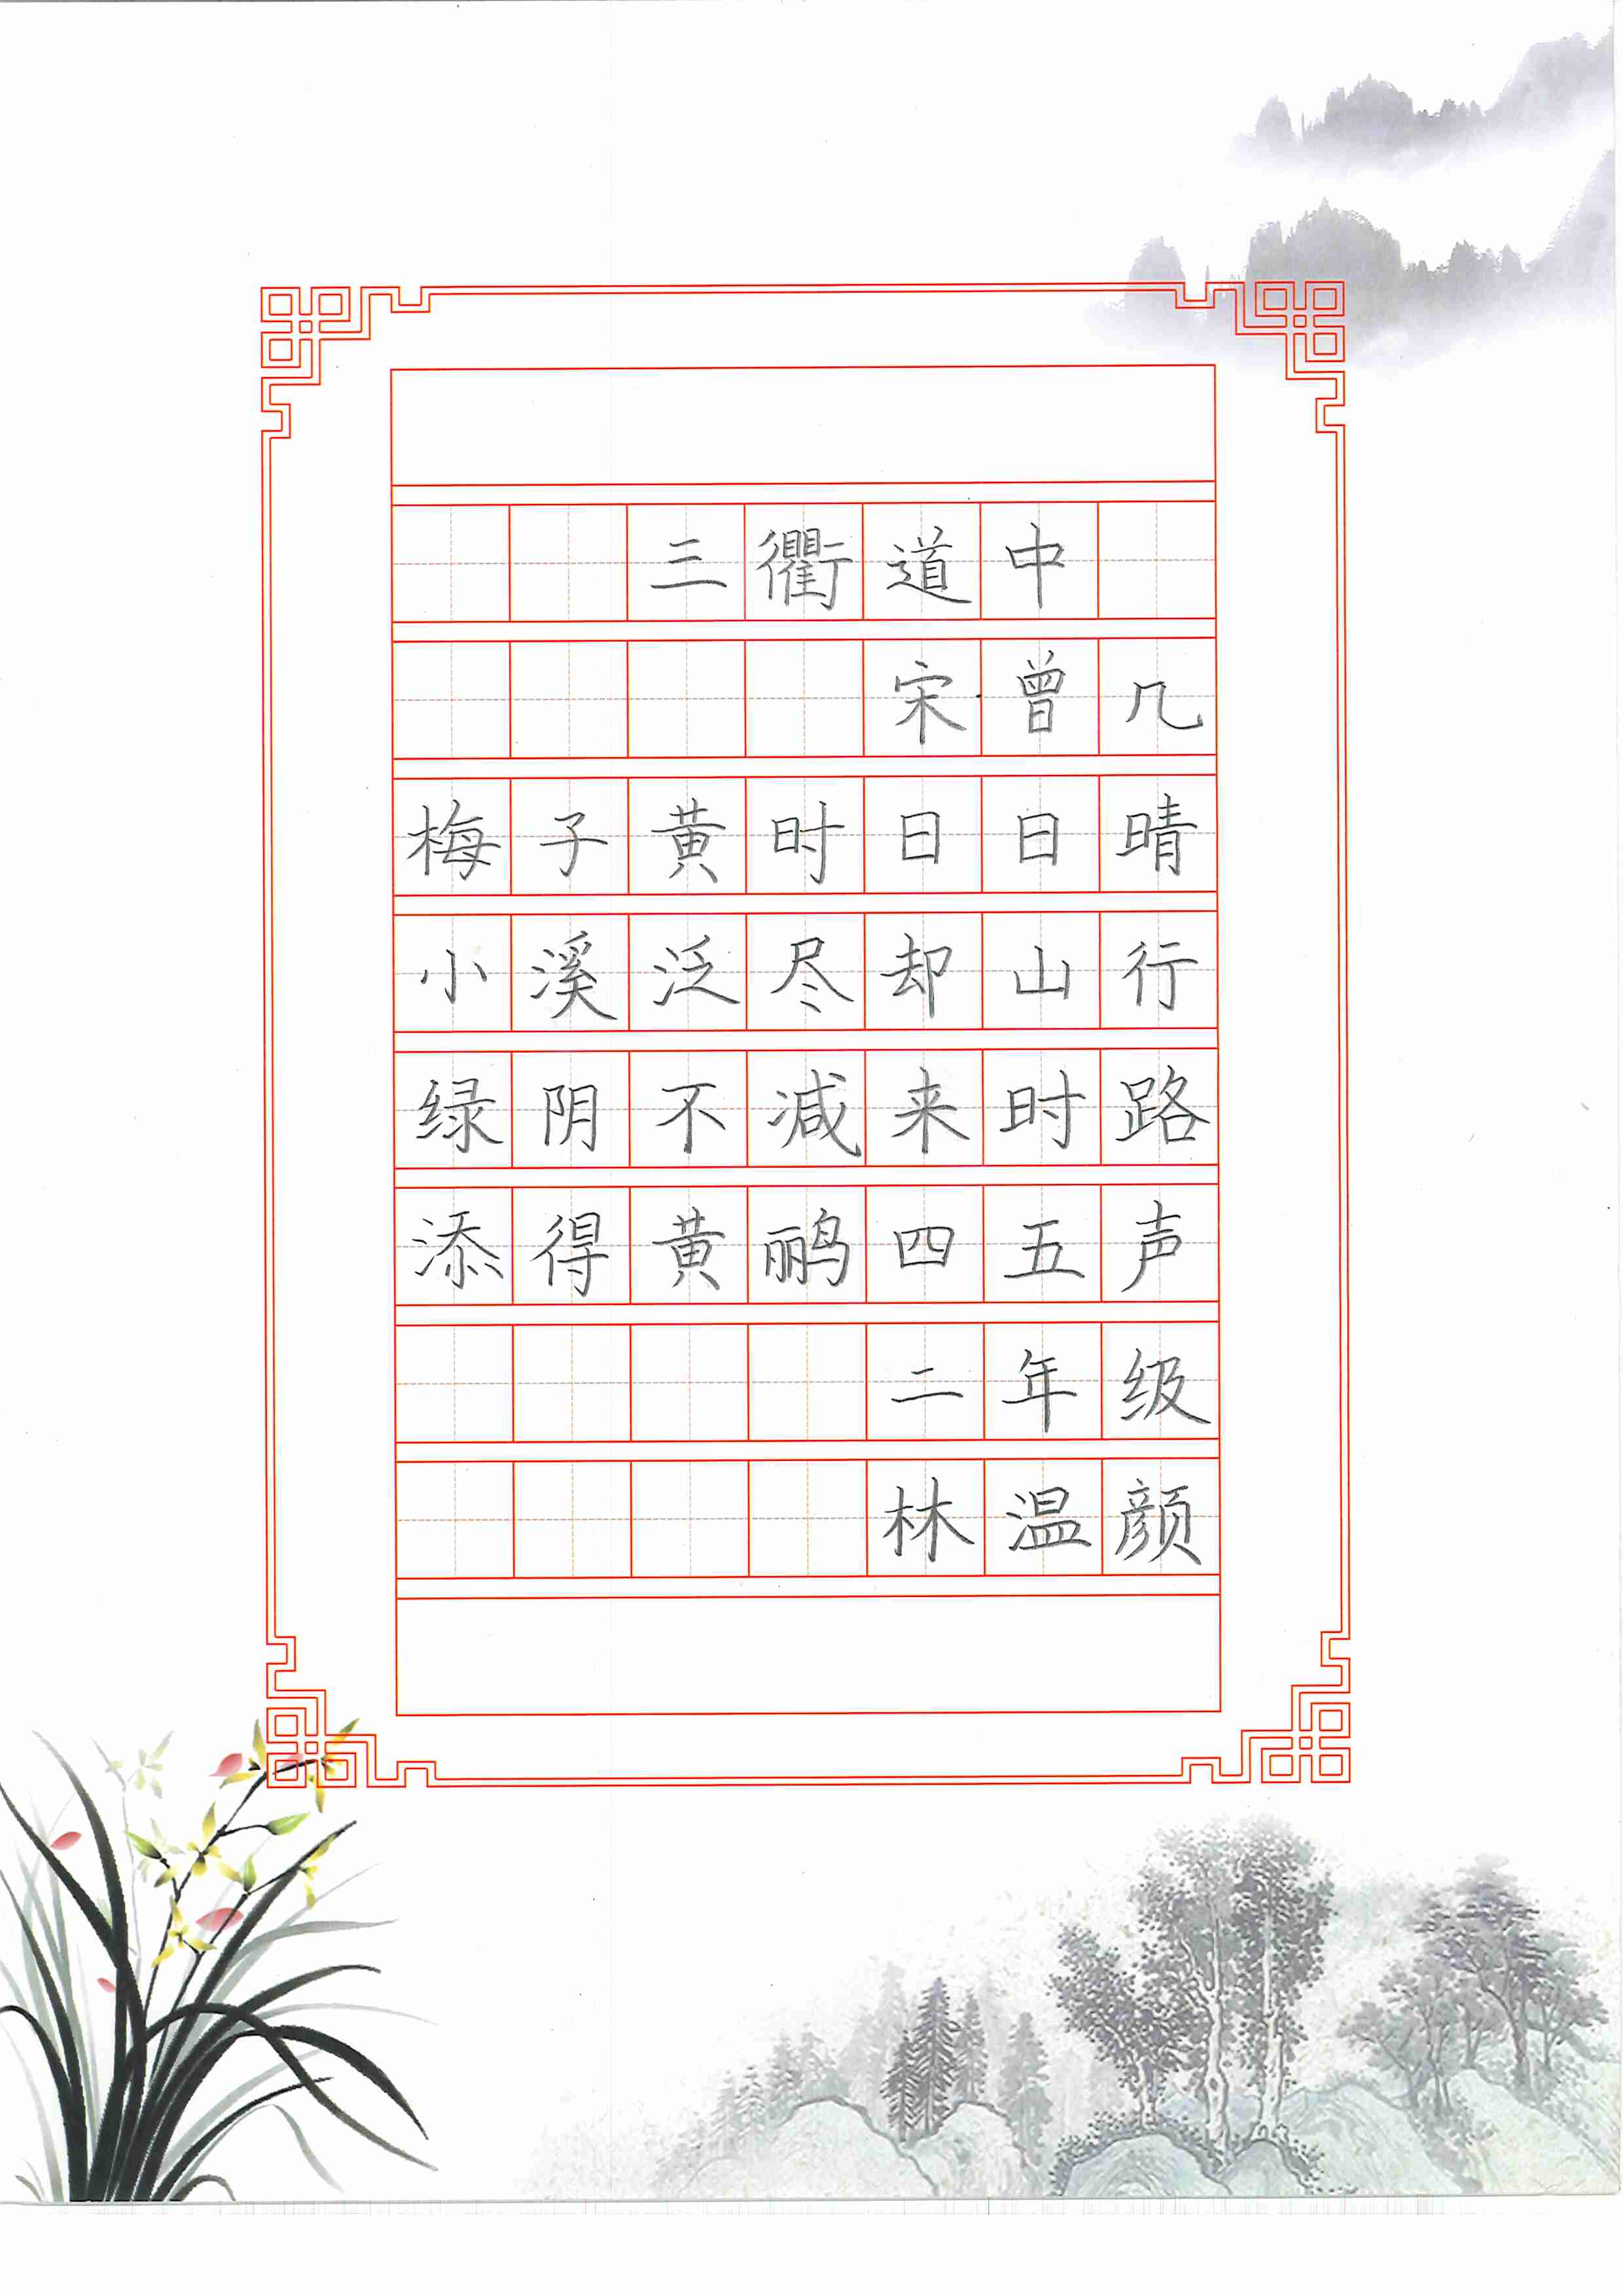 三衢道中
宋曾几
梅子黄时日日晴
小溪泛尽却山行
绿阴不减来时路
添得黄鹂四五声
二年级
林温颜